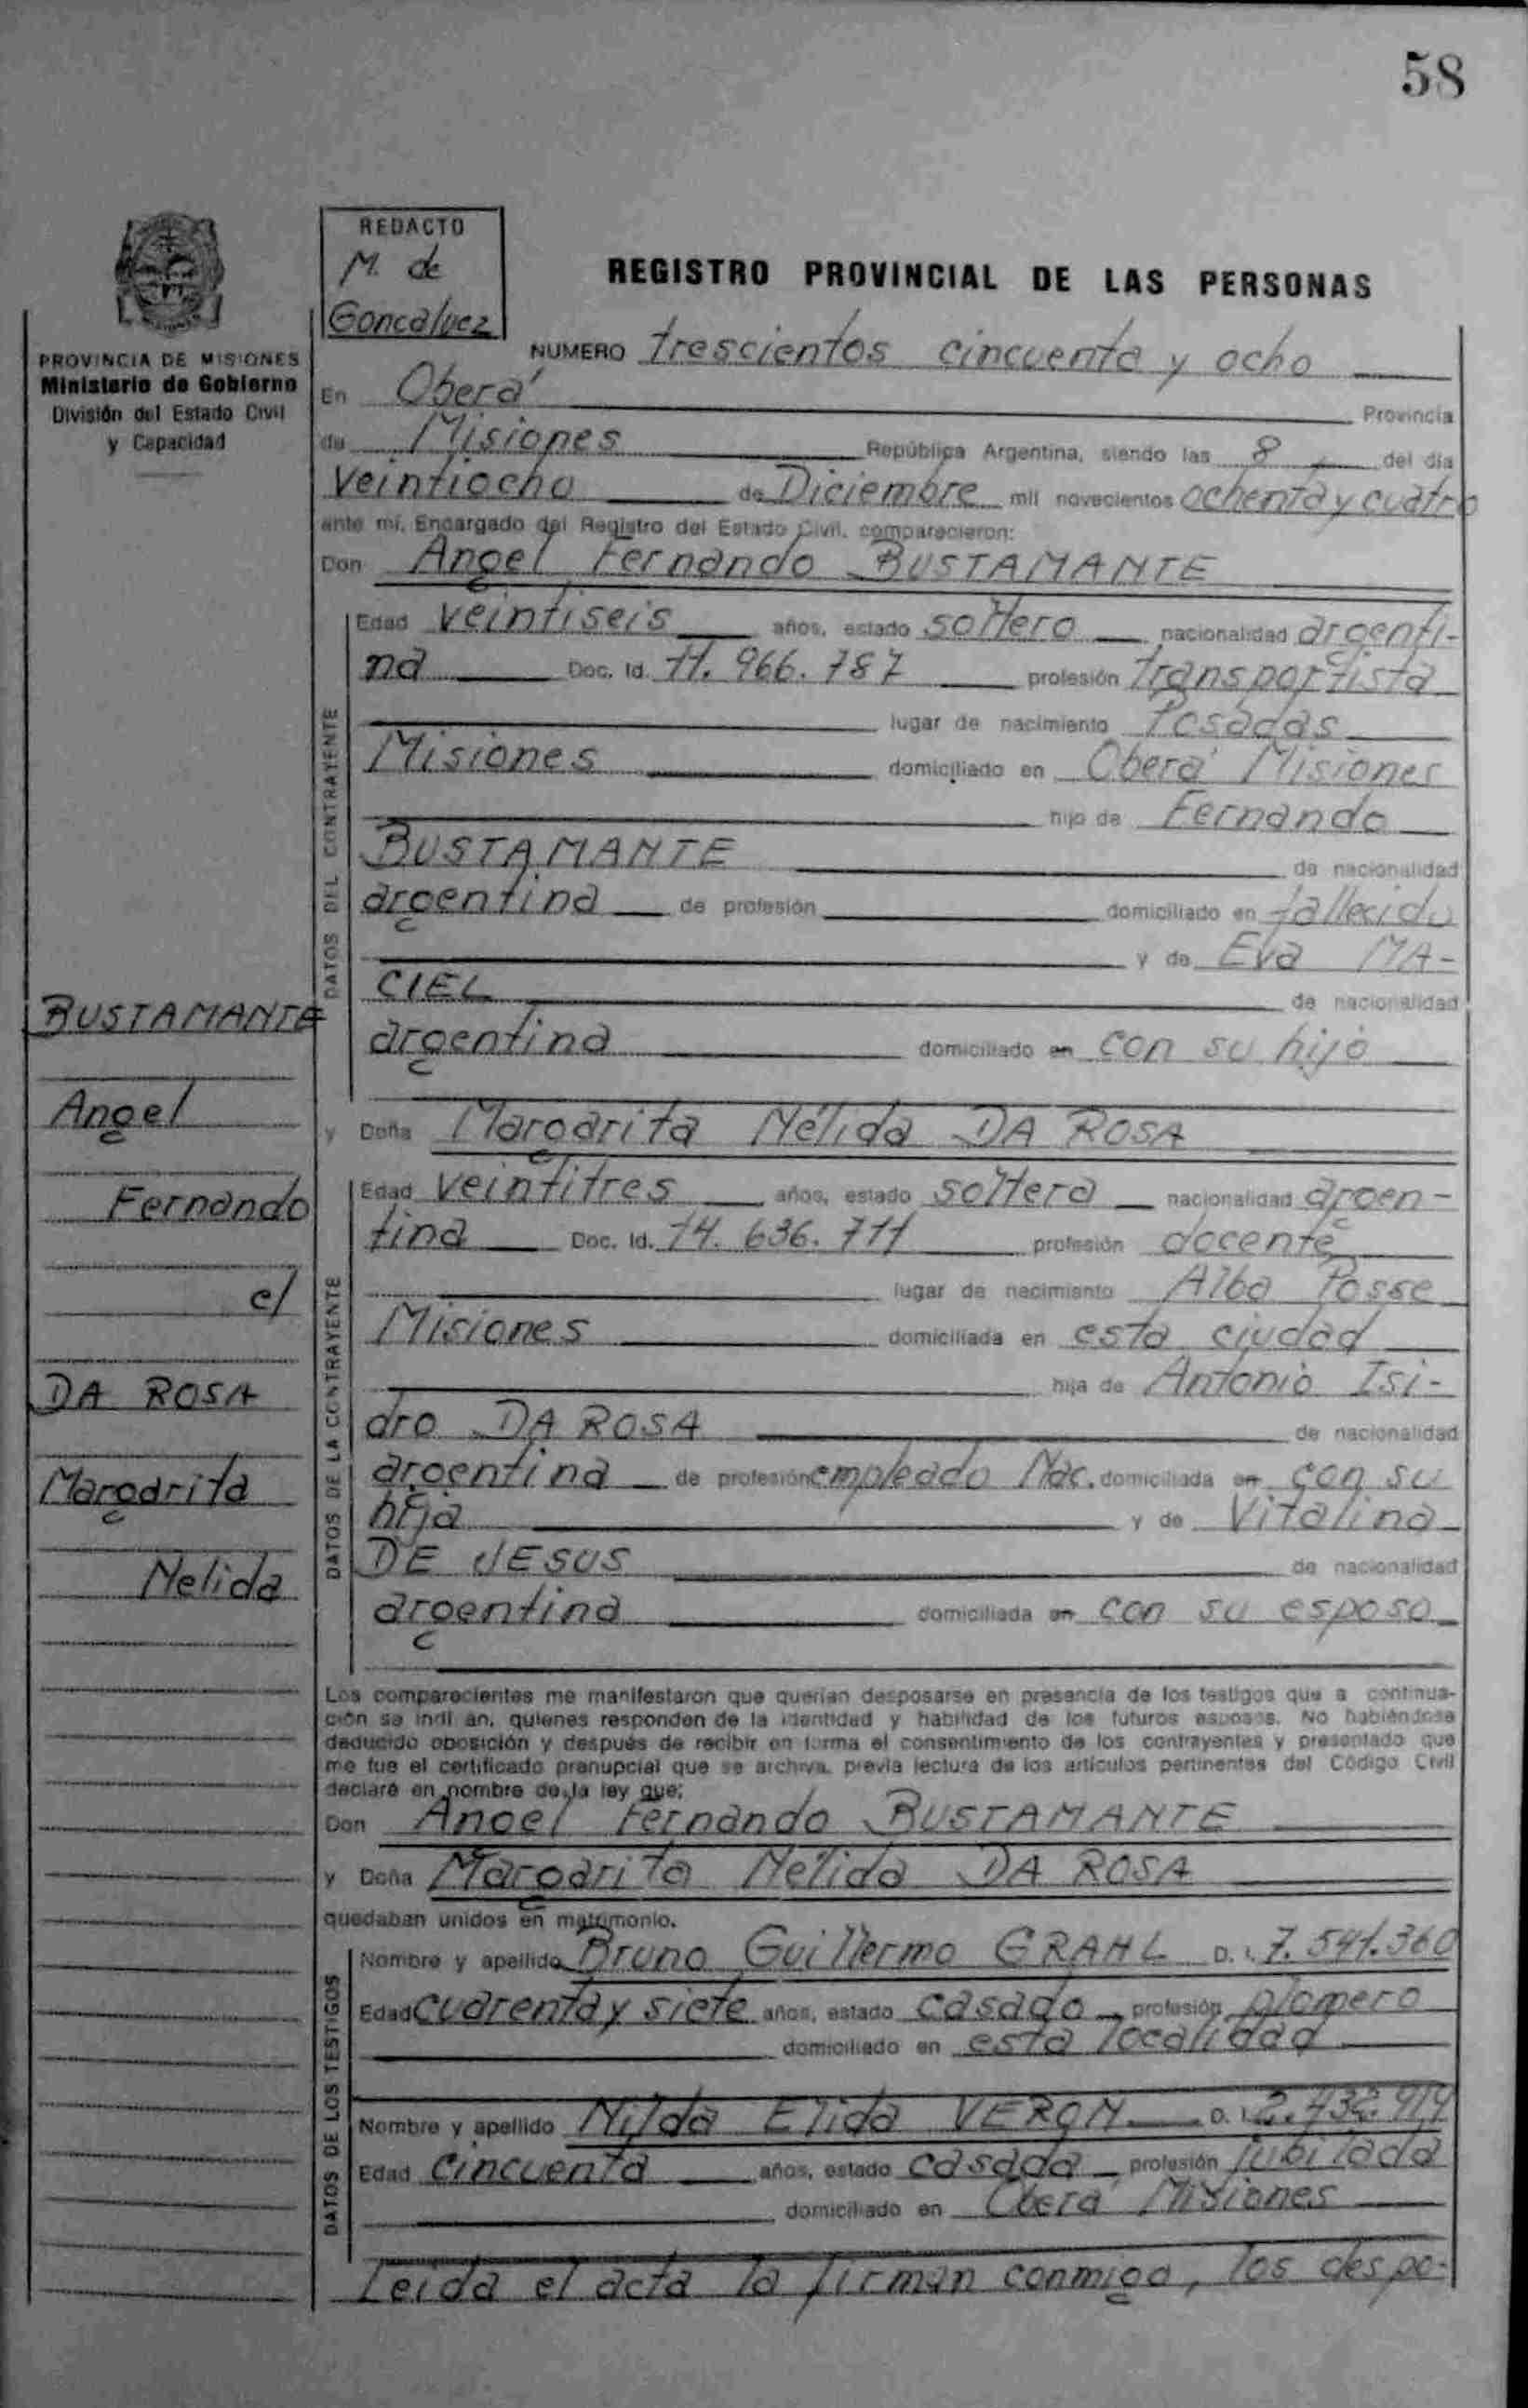 58
REDACTO
M. de
Goncalvez
REGISTRO PROVINCIAL DE LAS PERSONAS
PROVINCIA DE MISIONES
Ministerio de Gobierno
División del Estado Civil
y Capacidad
NUMERO trescientos cincuenta y ocho
En Oberá Provincia
de Misiones República Argentina, siendo las 8 del día
veintiocho de Diciembre mil novecientos ochenta y cuatro
ante mí, Encargado del Registro del Estado Civil, comparecieron:
Don Angel Fernando BUSTAMANTE
DATOS DEL CONTRAYENTE
Edad veintiseis años, estado soltero nacionalidad argenti-
na Doc. Id. 11.966.787 profesión transportista
lugar de nacimiento Posadas
Misiones domiciliado en Oberá Misiones
hijo de Fernando
BUSTAMANTE de nacionalidad
argentina de profesión domiciliado en fallecido
y de Eva MA-
CIEL de nacionalidad
argentina domiciliado en con su hijo
y Doña Margarita Nélida DA ROSA
DATOS DE LA CONTRAYENTE
Edad veintitres años, estado soltera nacionalidad argen-
tina Doc. Id. 14.636.711 profesión docente
lugar de nacimiento Alba Posse
Misiones domiciliada en esta ciudad
hija de Antonio Isi-
dro DA ROSA de nacionalidad
argentina de profesión empleado Nac. domiciliada en con su
hija y de Vitalina
DE JESUS de nacionalidad
argentina domiciliada en con su esposo
BUSTAMANTE
Angel
Fernando
c/
DA ROSA
Margarita
Nelida
Los comparecientes me manifestaron que querían desposarse en presencia de los testigos que a continua-
ción se indi an, quienes responden de la identidad y habilidad de los futuros esposos. No habiéndose
deducido oposición y después de recibir en forma el consentimiento de los contrayentes y presentado que
me fue el certificado prenupcial que se archiva, previa lectura de los artículos pertinentes del Código Civil
declaré en nombre de la ley que:
Don Angel Fernando BUSTAMANTE
y Doña Margarita Nélida DA ROSA
quedaban unidos en matrimonio.
DATOS DE LOS TESTIGOS
Nombre y apellido Bruno Guillermo GRAHL D. I. 7.541.360
Edad cuarenta y siete años, estado casado profesión plomero
domiciliado en esta localidad
Nombre y apellido Nilda Elida VERON D. I. 2.432.914
Edad cincuenta años, estado casada profesión jubilada
domiciliado en Oberá Misiones
Leida el acta la firman conmigo, los despo-